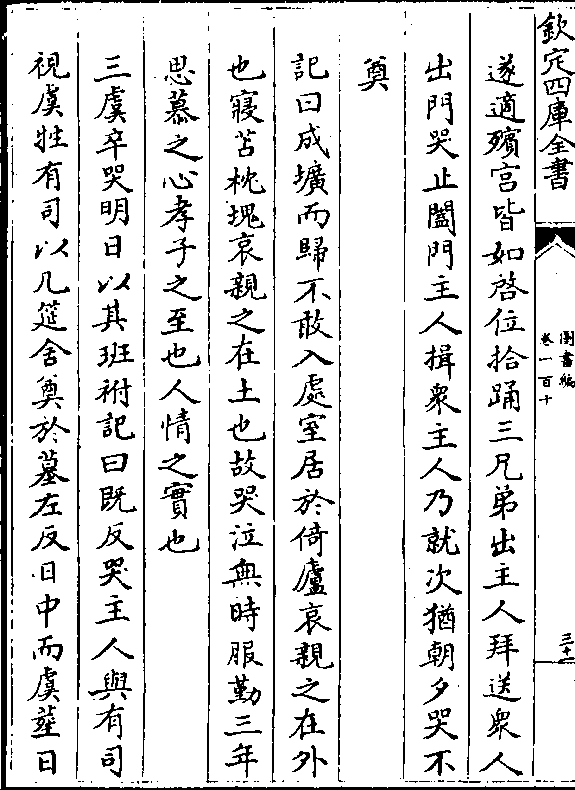 欽定四庫全書
圖書編
卷一百十
三十一
遂適殯宫皆如啓位拾踊三兄弟出主人拜送衆人
出門哭止闔門主人揖衆主人乃就次猶朝夕哭不
奠
記曰成壙而歸不敢入處室居於倚廬哀親之在外
也寢苫枕塊哀親之在土也故哭泣無時服勤三年
思慕之心孝子之至也人情之實也
三虞卒哭明日以其班祔記曰既反哭主人與有司
視虞牲有司以几筵舍奠於墓左反日中而虞葬日